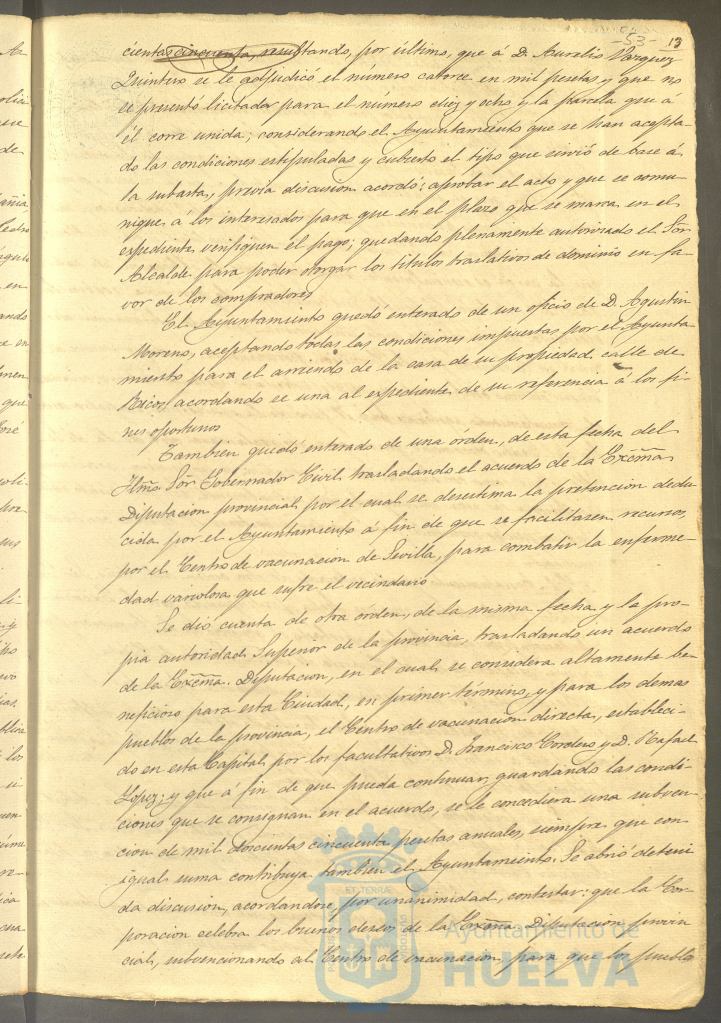 -53- 13
cientas cincuenta, resultando, por último, que á D. Aurelio Vazquez
Quintero se le adjudicó el número catorce en mil pesetas y que no
se presentó licitador para el número diez y ocho y la parcela que á
él corre unida; considerando el Ayuntamiento que se han acepta-
do las condiciones estipuladas y cubierto el tipo que sirvió de base á
la subasta, previa discusion acordó: aprobar el acto y que se comu-
nique á los interesados para que en el plazo que se marca en el
expediente verifiquen el pago; quedando plenamente autorizado el Sor
Alcalde para poder otorgar los titulos traslativos de dominio en fa-
vor de los compradores
El Ayuntamiento quedó enterado de un oficio de D. Agustin
Moreno, aceptando todas las condiciones impuestas por el Ayunta
miento para el arriendo de la casa de su propiedad calle de
acordando se una al expediente de su referencia á los fi-
nes oportunos
Tambien quedó enterado de una órden, de esta fecha del
Iltmo Sor Gobernador Civil trasladando el acuerdo de la Excma
Diputacion provincial por el cual se desestima la pretencion dedu-
cida por el Ayuntamiento á fin de que se facilitasen recursos
por el Centro de vacunacion de Sevilla, para combatir la enferme-
dad variolosa que sufre el vecindario
Se dió cuenta de otra órden, de la misma fecha y la pro-
pia autoridad Superior de la provincia, trasladando un acuerdo
de la Excma. Diputacion, en el cual se considera altamente be-
neficioso para esta Ciudad, en primer término, y para los demas
pueblos de la provincia, el Centro de vacunacion directa, estableci-
do en esta Capital por los facultativos D. Francisco Cordero y D. Rafael
Lopez; y que á fin de que pueda continuar, guardando las condi-
ciones que se consignan en el acuerdo, se le concediera una subven-
cion de mil doscientas cincuenta pesetas anuales, siempre que con
igual suma contribuya tambien el Ayuntamiento. Se abrió deteni
da discusion, acordandose, por unanimidad, contestar: que la Cor-
poracion celebra los buenos deseos de la Excma. Diputacion provin
cial, subvencionando al Centro de vacunacion para que los pueblos
Ayuntamiento de
HUELVA